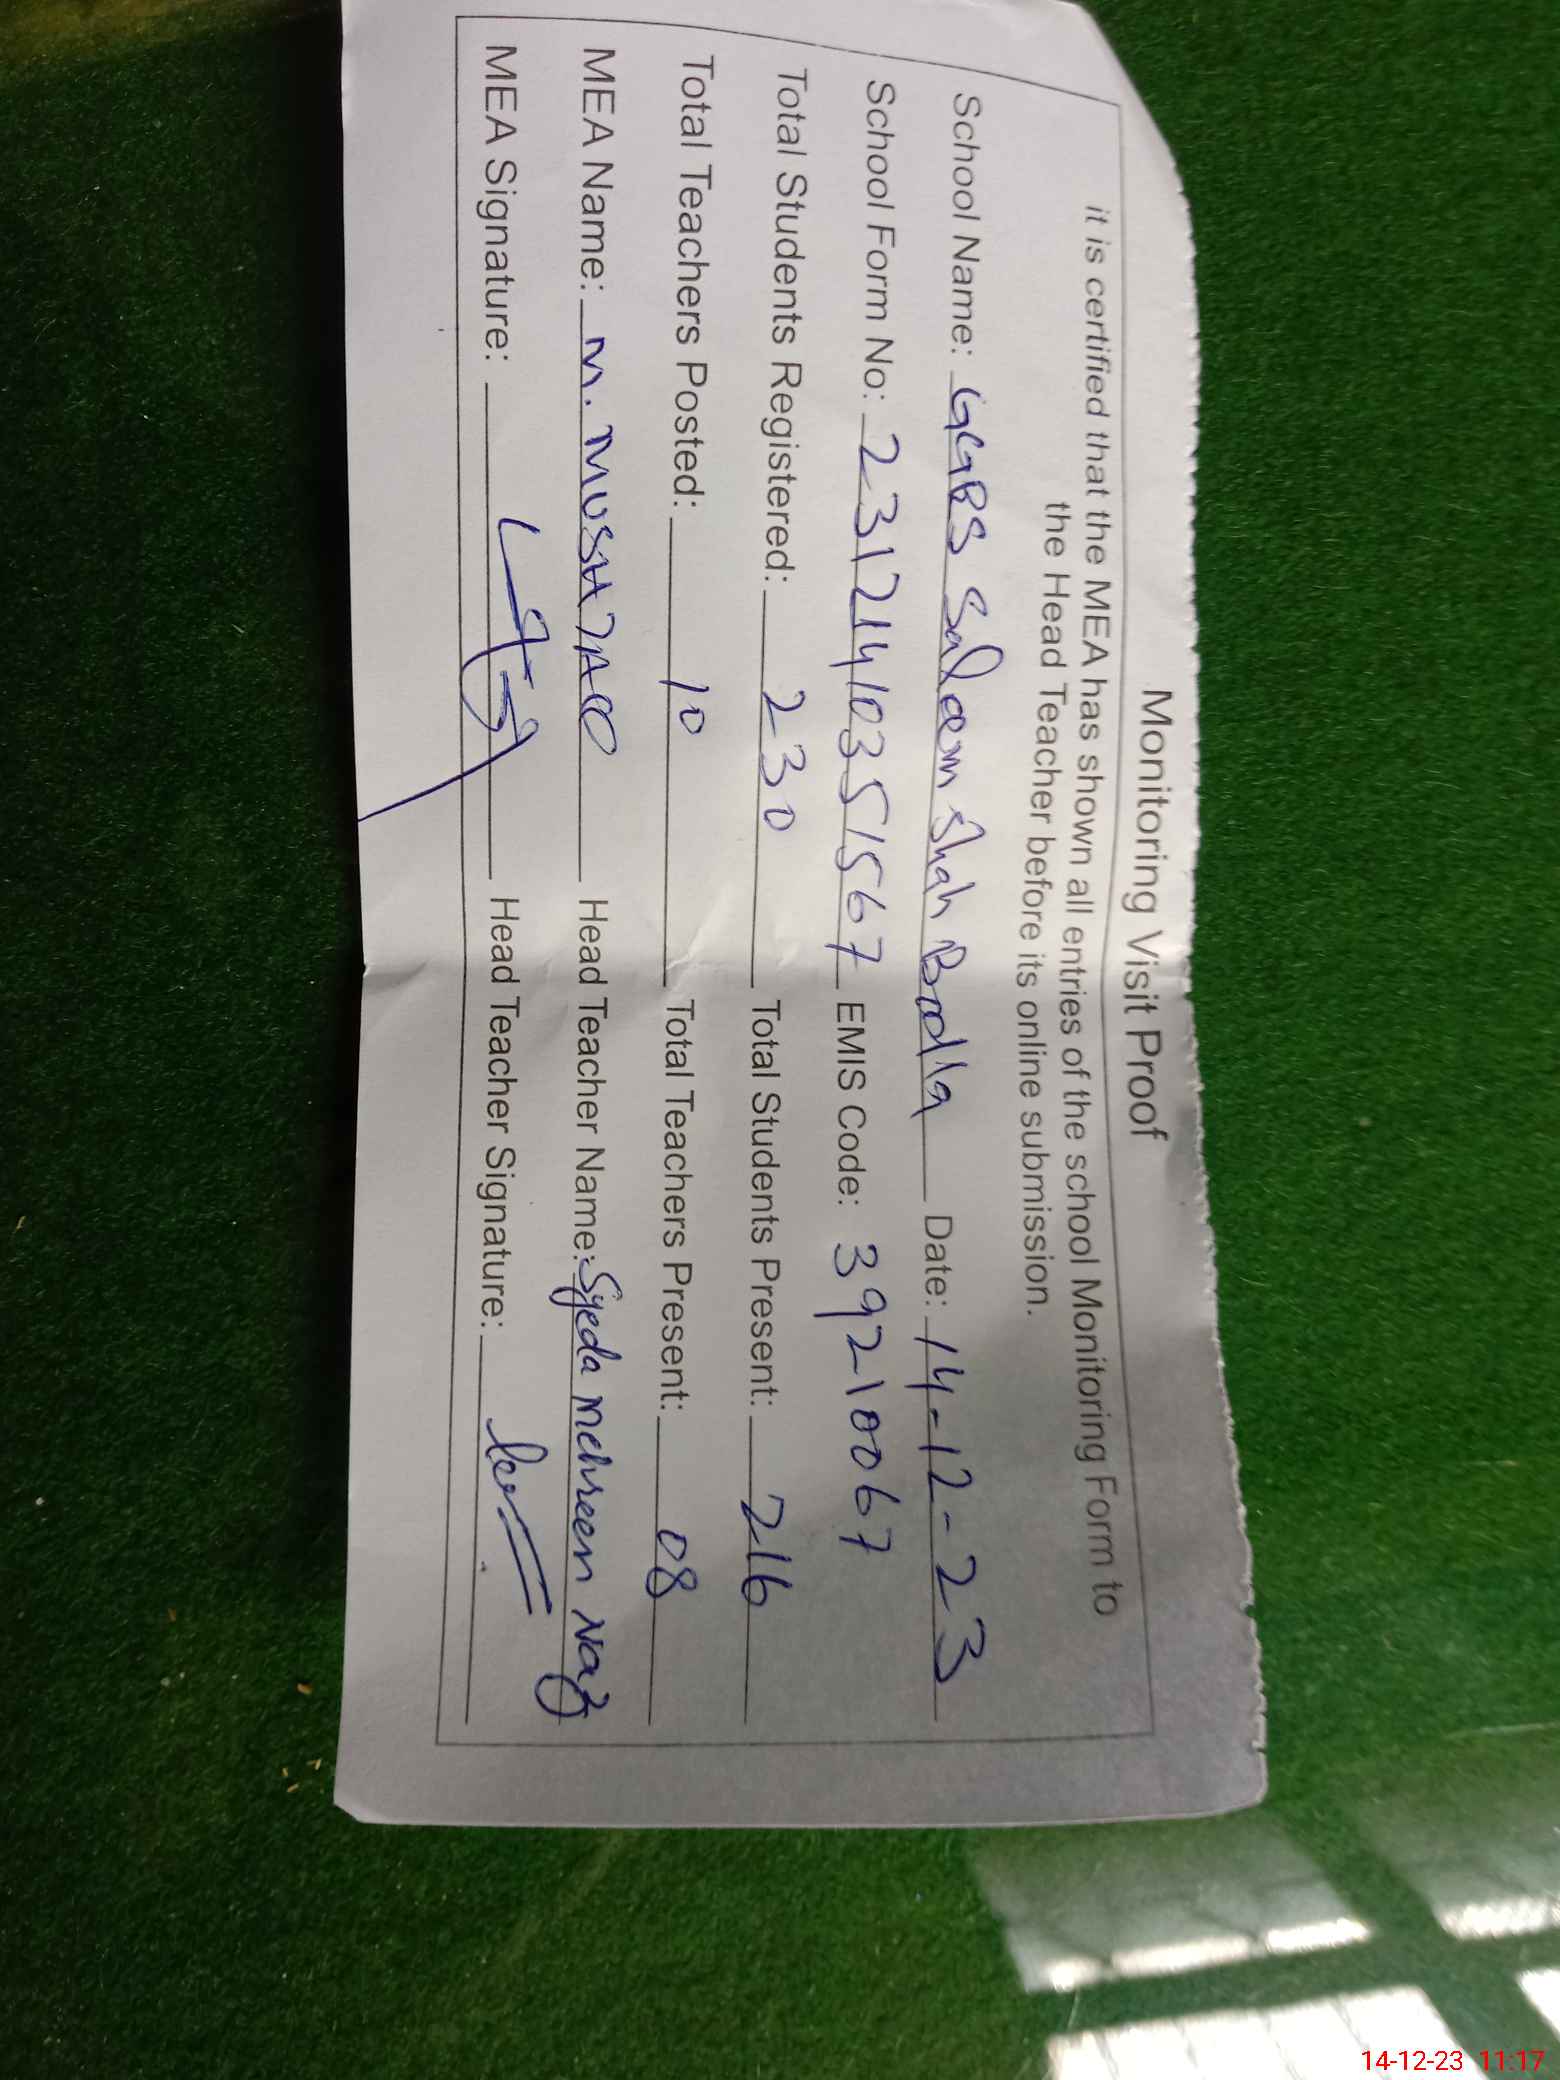 Monitoring Visit Proof
it is certified that the MEA has shown all entries of the school Monitoring Form to
the Head Teacher before its online submission.
School Name: GGPS Saleem Shah Bodla Date: 14-12-23
School Form No: 23121410351567 EMIS Code: 39210067
Total Students Registered: 230 Total Students Present: 216
Total Teachers Posted: 10 Total Teachers Present: 08
MEA Name: M. MUSHTAQ Head Teacher Name: Syeda Mehreen Naz
MEA Signature: Head Teacher Signature:
14-12-23 11:17